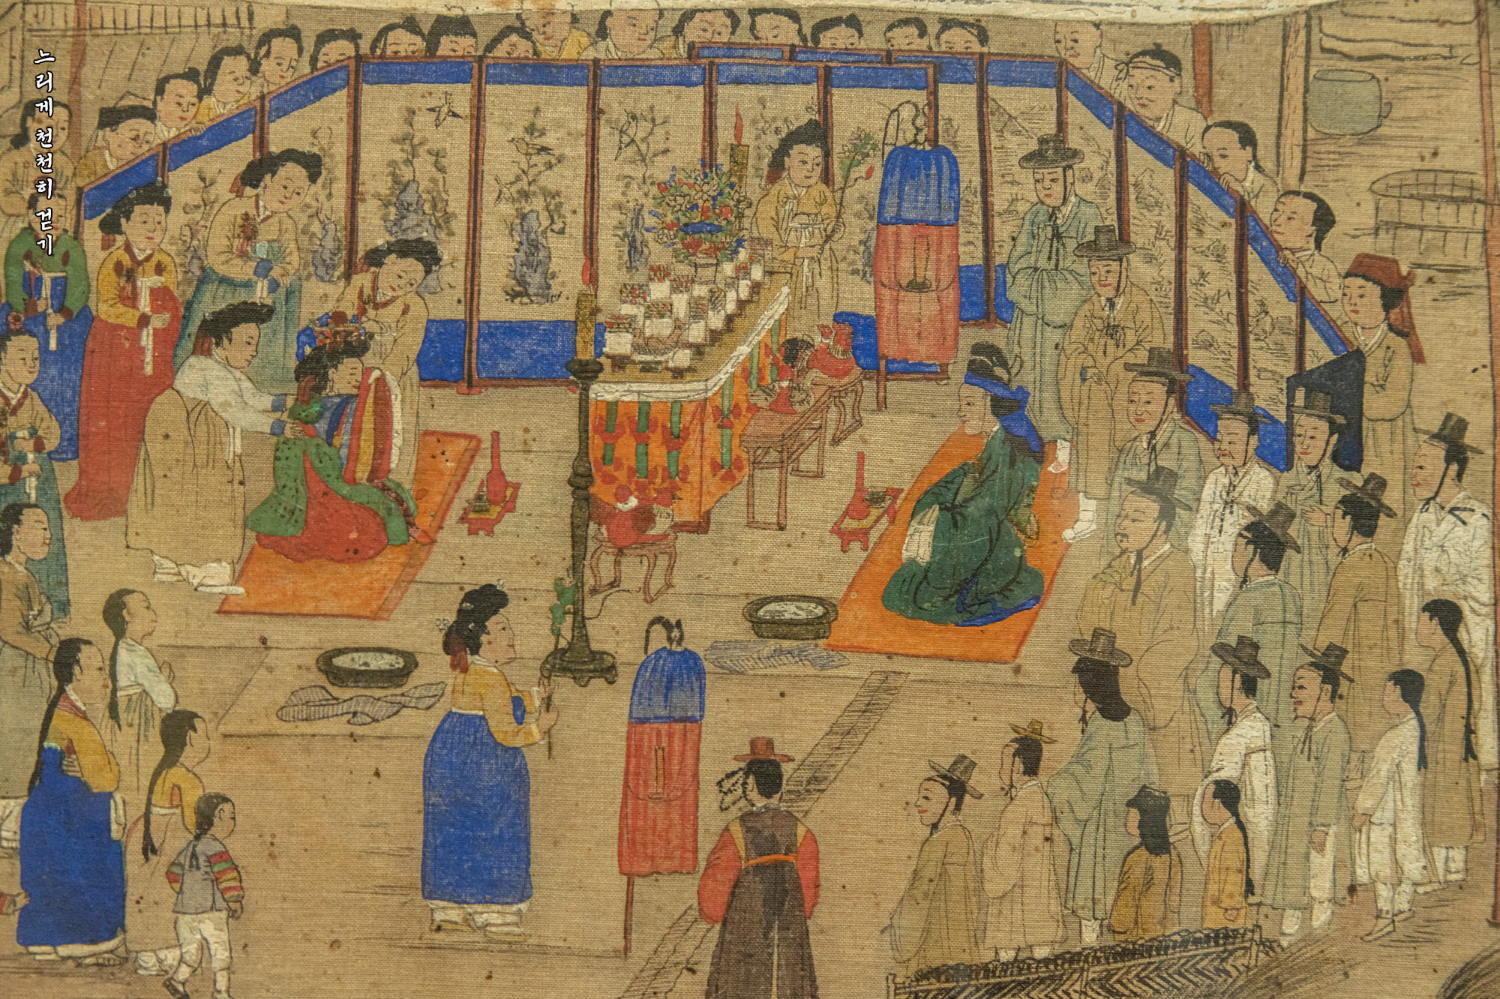 느리게천천히걷기